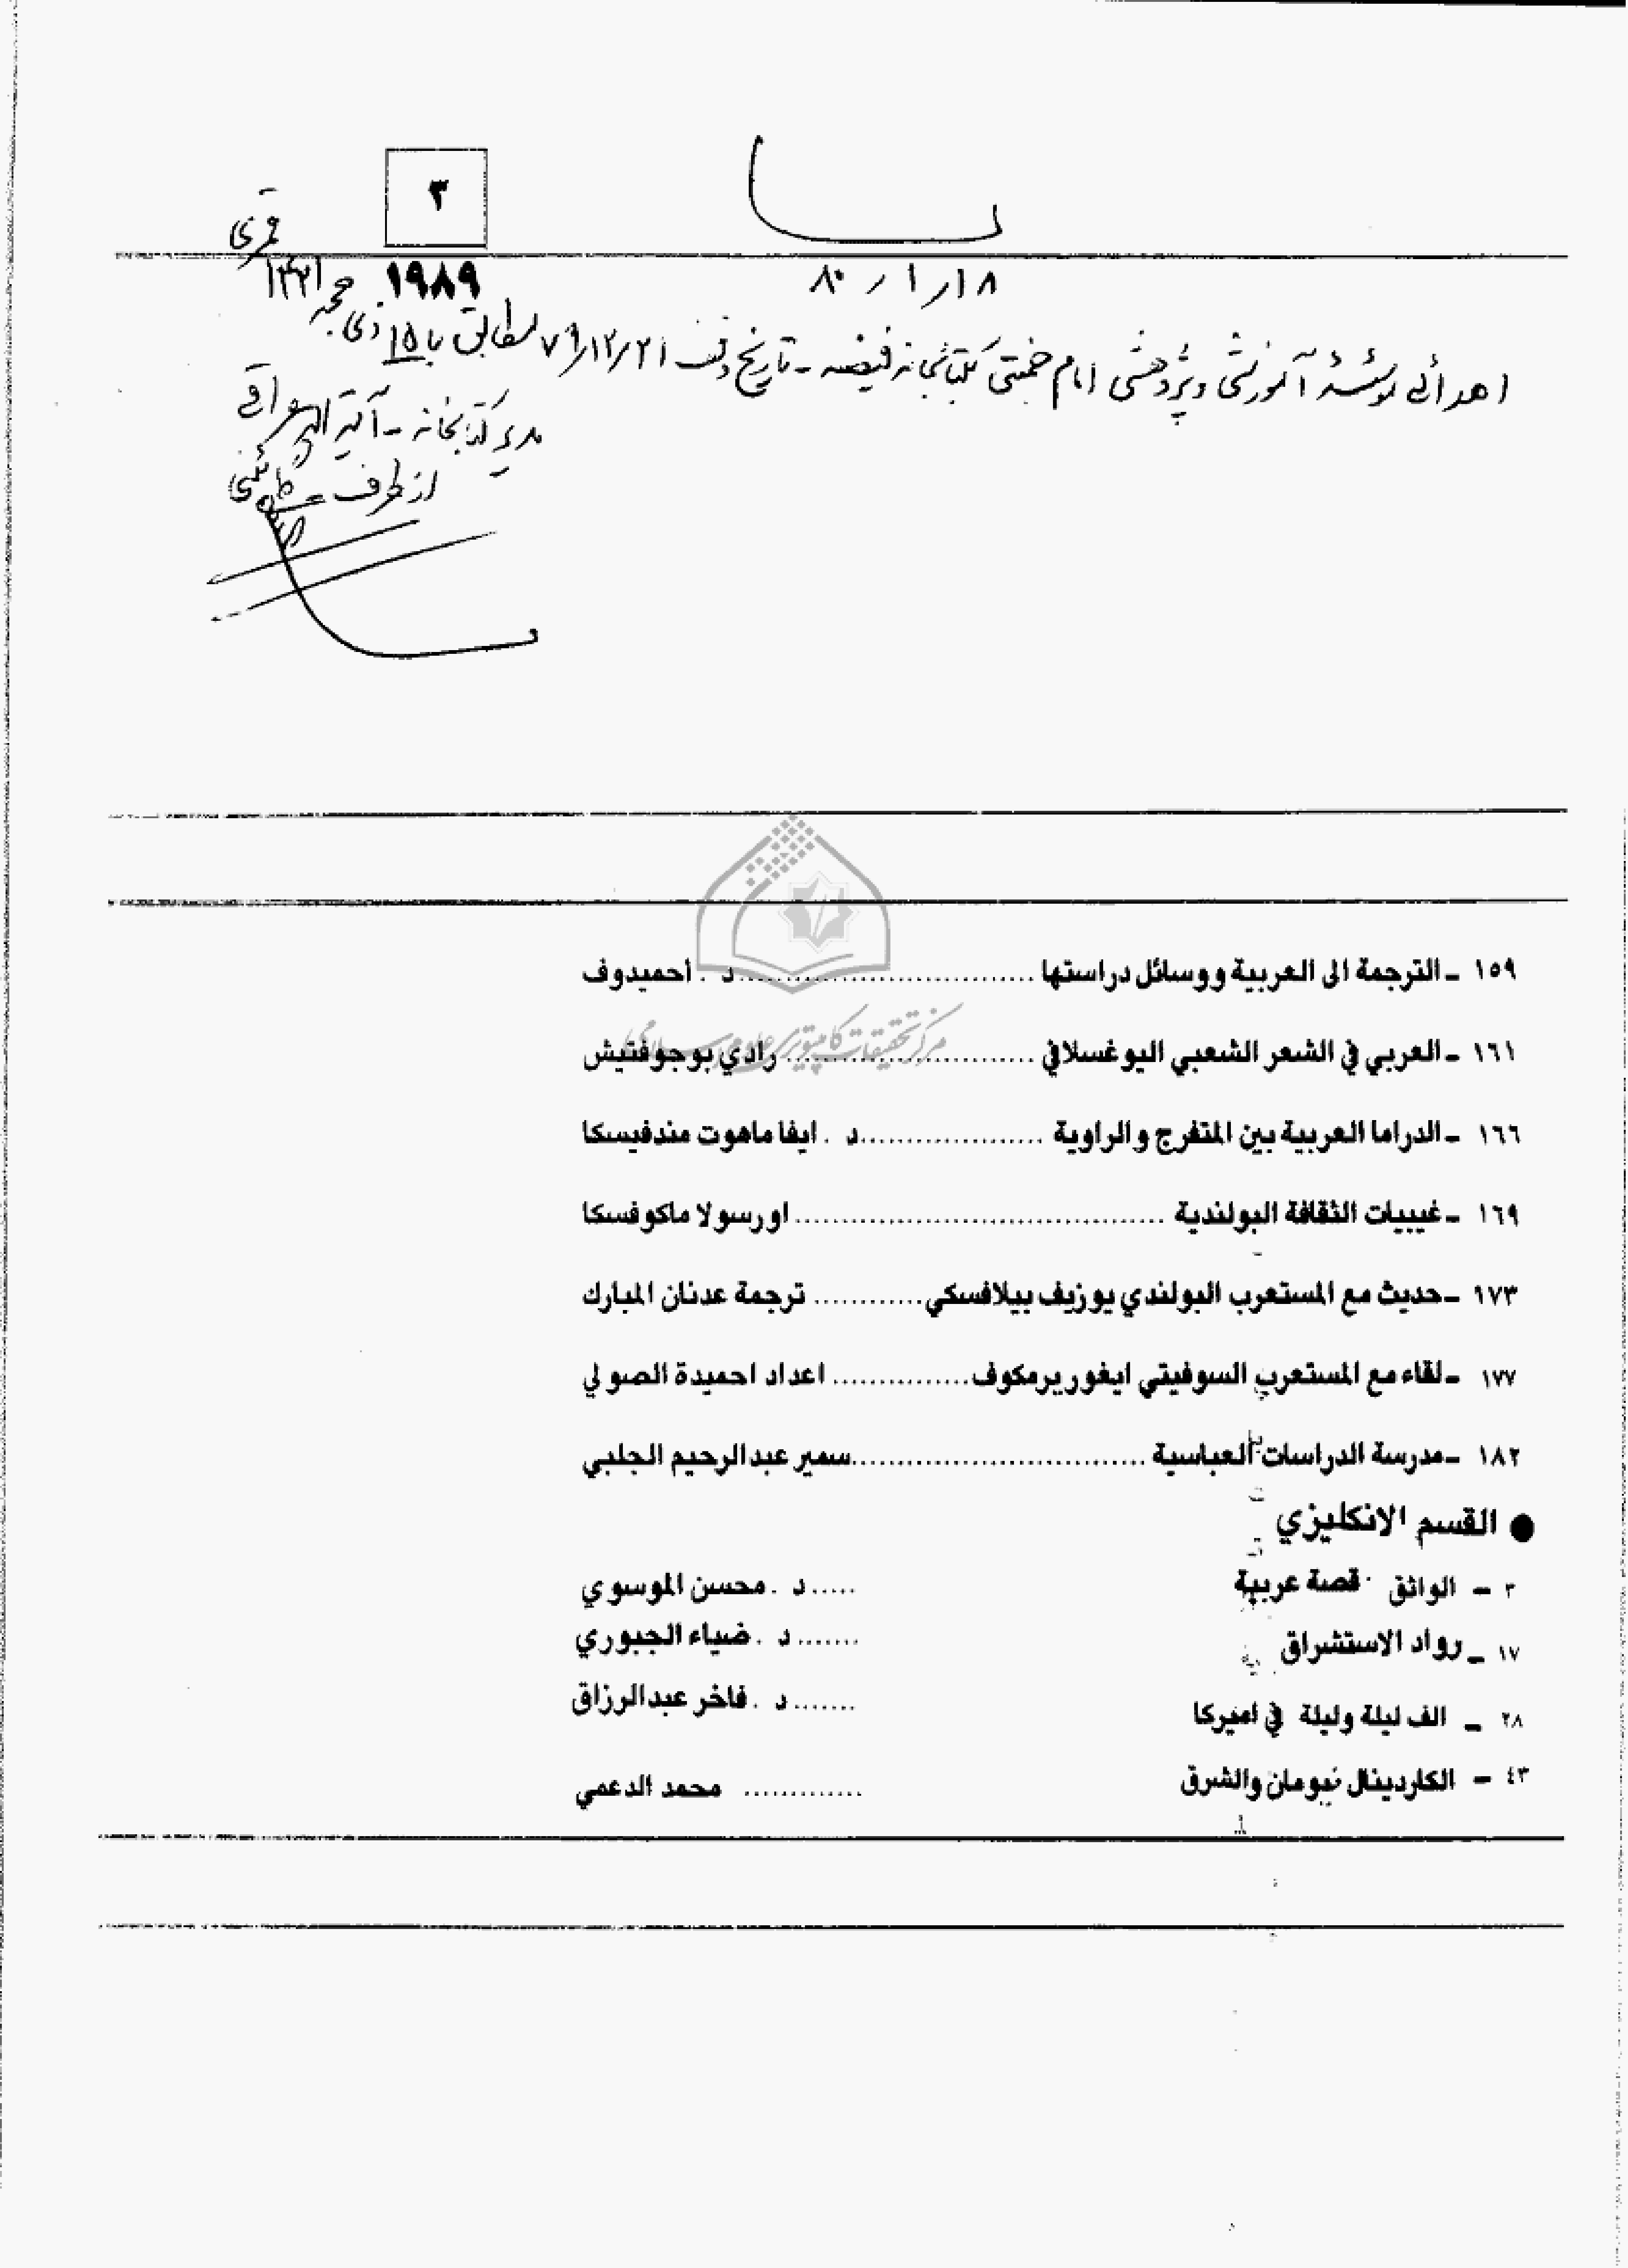 ٣
١٩٨٩
قمری
١٤٢١
٨٠/١/١٨
اهدائی مؤسسهٔ آموزشی و پژوهشی امام خمینی بکتابخانه فیضیه - تاریخ ٧٩/١٢/٢١ مطابق با ١٥ ذی حجه
مدیر کتابخانه - آیة الله
از طرف
١٥٩ - الترجمة الى العربية ووسائل دراستها ................................ د . احميدوف
١٦١ - العربي في الشعر الشعبي اليوغسلافي ........................... رادي بوجوفتيش
١٦٦ - الدراما العربية بين المتفرج والراوية .................... د . ايفا ماهوت مندفيسكا
١٦٩ - غيبيات الثقافة البولندية ........................................ اورسولا ماكوفسكا
١٧٣ - حديث مع المستعرب البولندي يوزيف بيلافسكي ............ ترجمة عدنان المبارك
١٧٧ - لقاء مع المستعرب السوفيتي ايغور يرمكوف ............... اعداد احميدة الصولي
١٨٢ - مدرسة الدراسات العباسية ................................ سمير عبدالرحيم الجلبي
● القسم الانكليزي
٣ - الواثق قصة عربية ..... د . محسن الموسوي
١٧ - رواد الاستشراق ....... د . ضياء الجبوري
٢٨ - الف ليلة وليلة في اميركا ....... د . فاخر عبدالرزاق
٤٣ - الكاردينال نيومان والشرق ............. محمد الدعمي
مركز تحقيقات كامپيوترى علوم اسلامى